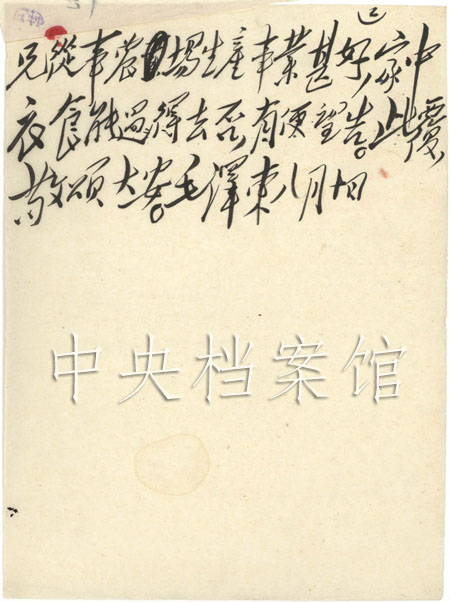 兄從事農場生產事業甚好，家中
衣食能過得去否，有便望告。此覆
敬頌大安。毛澤東 八月十四
中央档案馆